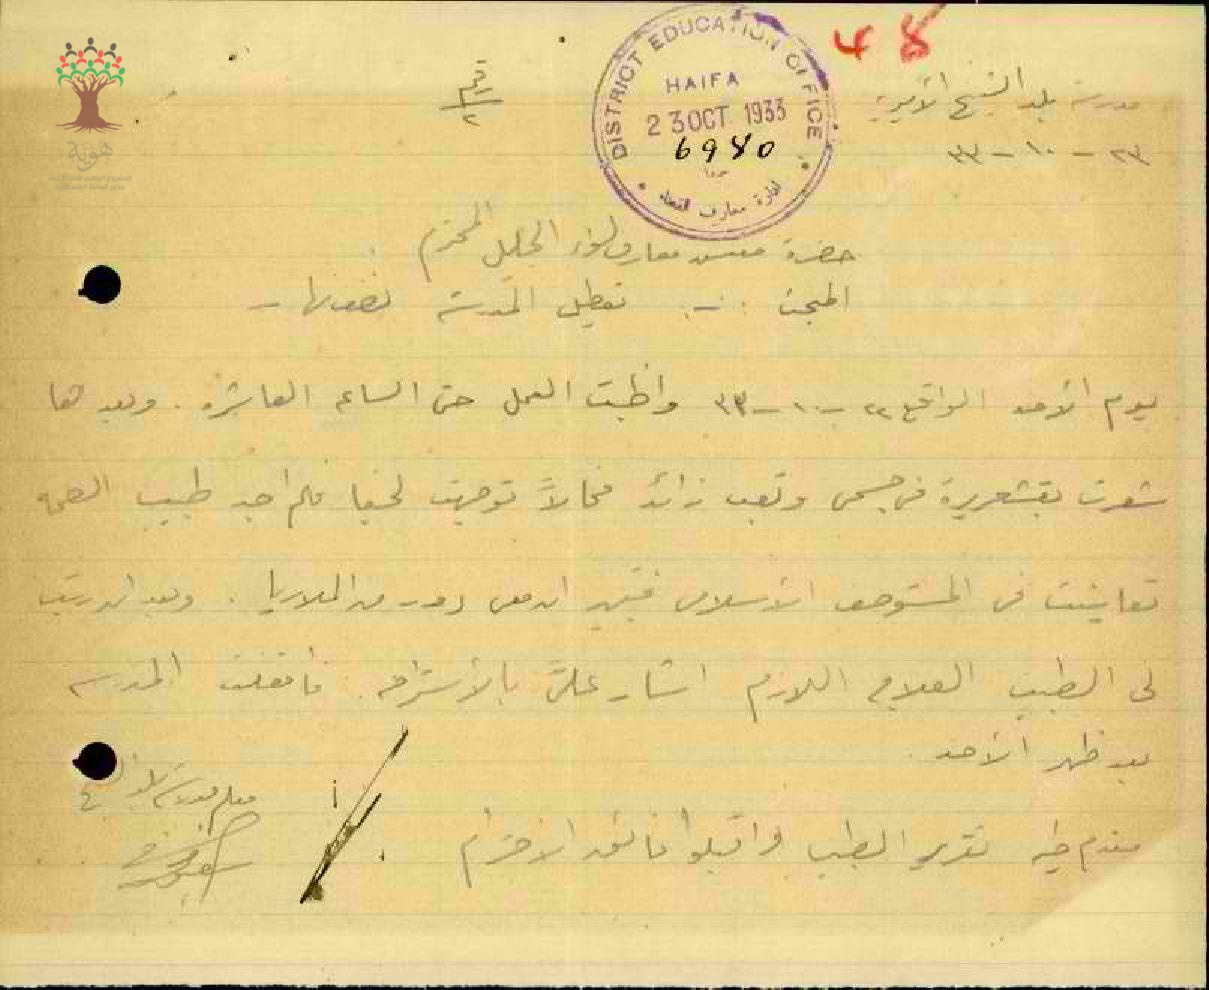 48
مدرسة بلد الشيخ الأميرية
٢٣ - ١٠ - ٣٣
رقم
٢
DISTRICT EDUCATION OFFICE
HAIFA
23 OCT 1933
6980
حيفا
ادارة معارف القضاء
هوية
حضرة مفتش معارف لواء الجليل المحترم
المبحث :- تعطيل المدرسة نصف نهار -
يوم الأحد الواقع ٢٢ - ١٠ - ٣٣ واظبت العمل حتى الساعه العاشره . وبعدها
شعرت بقشعريرة في جسمي وتعب زائد فحالاً توجهت لحيفا فلم اجد طبيب الصحه
تعاينت في المستوصف الأسلامي فتبين ان معي دور من الملاريا . وبعد ان رتب
لي الطبيب العلاج اللازم اشار عليّ بالأستراحه . فأقفلت المدرسه
بعد ظهر الأحد .
مقدم طيه تقرير الطبيب واقبلوا فائق الاحترام .
معلم مدرسة بلد الشيخ